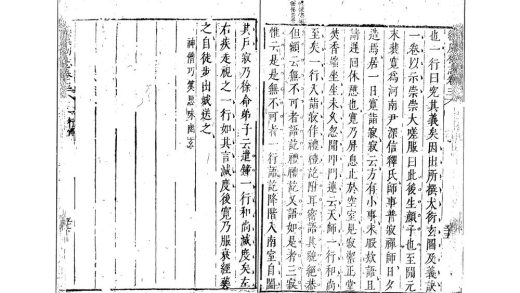 也一行曰究其義矣因出所撰太衍玄圖及義訣
一卷以示崇崇大嗟服曰此後生顏子也至開元
末裴寬為河南尹深信釋氏師事普寂禪師日夕
造焉居一日寬詣寂寂云方有小事未暇欵語且
請遲回休憩也寬乃屏息止於空室見寂潔正堂
焚香端坐坐未久忽聞叩門連云天師一行和尚
至矣一行入詣寂作禮禮訖附耳密語其貌絕恭
但額云無不可者語訖禮禮訖又語如是者三寂
惟云是是無不可者一行語訖降階入南室自闔
其戶寂乃徐命弟子云遣鐘一行和尚滅度矣左
右疾走視之一行如其言滅度後寬乃服衰絰葬
之自徒步出城送之
神僧巧莫思味幽玄